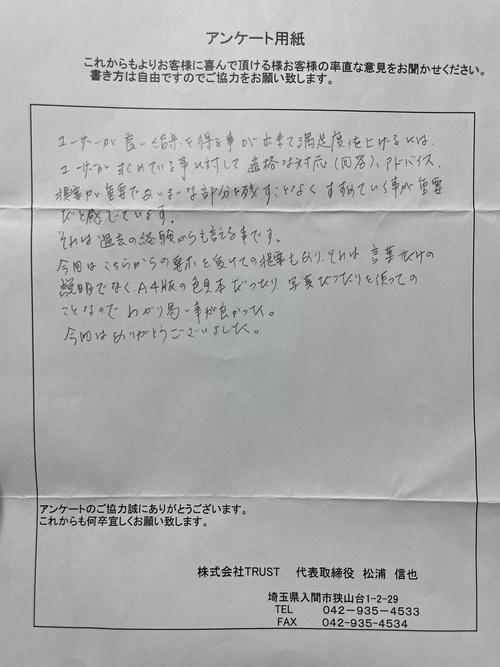 アンケート用紙
これからもよりお客様に喜んで頂ける様お客様の率直な意見をお聞かせください。
書き方は自由ですのでご協力をお願い致します。
ユーザーが良い結果を得る事が出来て満足度を上げるには、
ユーザーが求めている事に対して適格な対応（回答）、アドバイス、
提案が重要であいまいな部分を残すことなくすすめていく事が重要
だと感じています。
それは過去の経験からも言える事です。
今回はこちらからの要求を受けての提案もあり、それは言葉だけの
説明でなく、A4版の色見本だったり、写真だったりを使っての
ことなのでわかり易い事が良かった。
今回はありがとうございました。
アンケートのご協力誠にありがとうございます。
これからも何卒宜しくお願い致します。
株式会社TRUST 代表取締役 松浦 信也
埼玉県入間市狭山台1-2-29
TEL 042-935-4533
FAX 042-935-4534